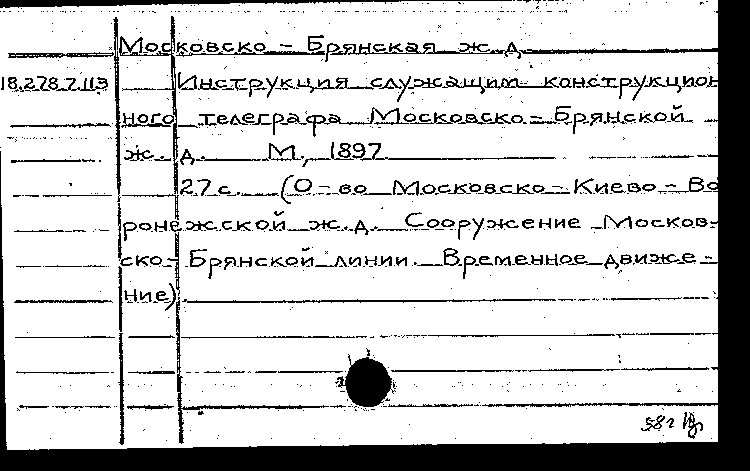 Московско - Брянская ж. д.
18.278.7.113 Инструкция служащим конструкцион
ного телеграфа Московско - Брянской
ж. д. М., 1897
27 с. (О-во Московско - Киево - Во
ронежской ж.д. Сооружение Москов-
ско - Брянской линии. Временное движе-
ние).
58г